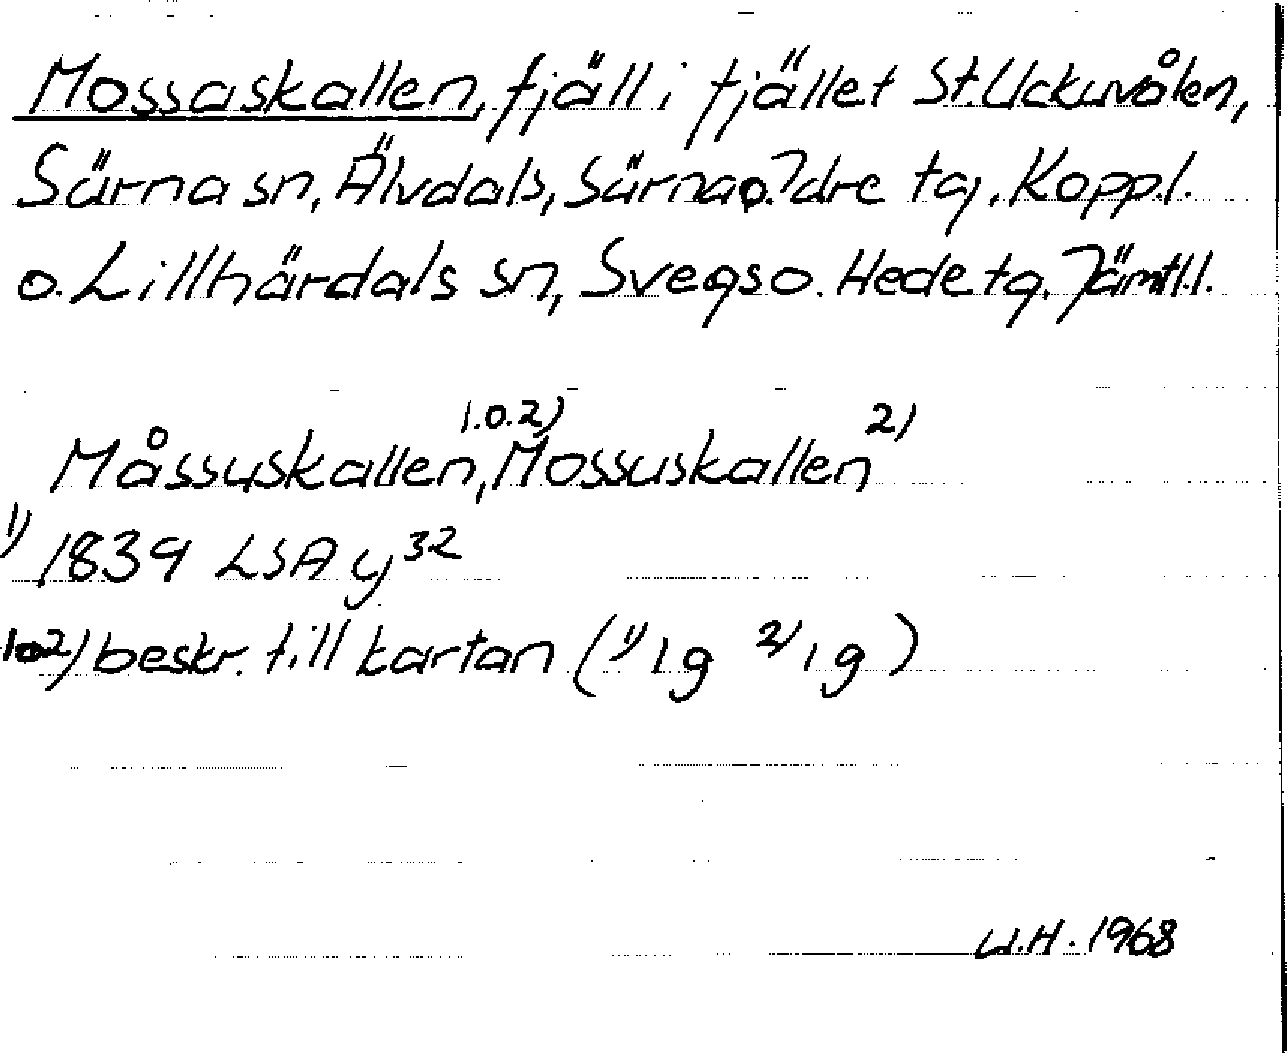 Mossaskallen, fjäll i fjället St.Uckuvålen,
Särna sn, Älvdals, Särna o. Idre tg. Kopp.l.
o. Lillhärdals sn, Svegs o. Hede tg. Jämtl.l.
Måssuskallen, 1.o.2) Mossuskallen 2)
1) 1839 LSA y 32
1.o.2) beskr. till kartan (1) 1g 2) 1g)
W.H. 1968